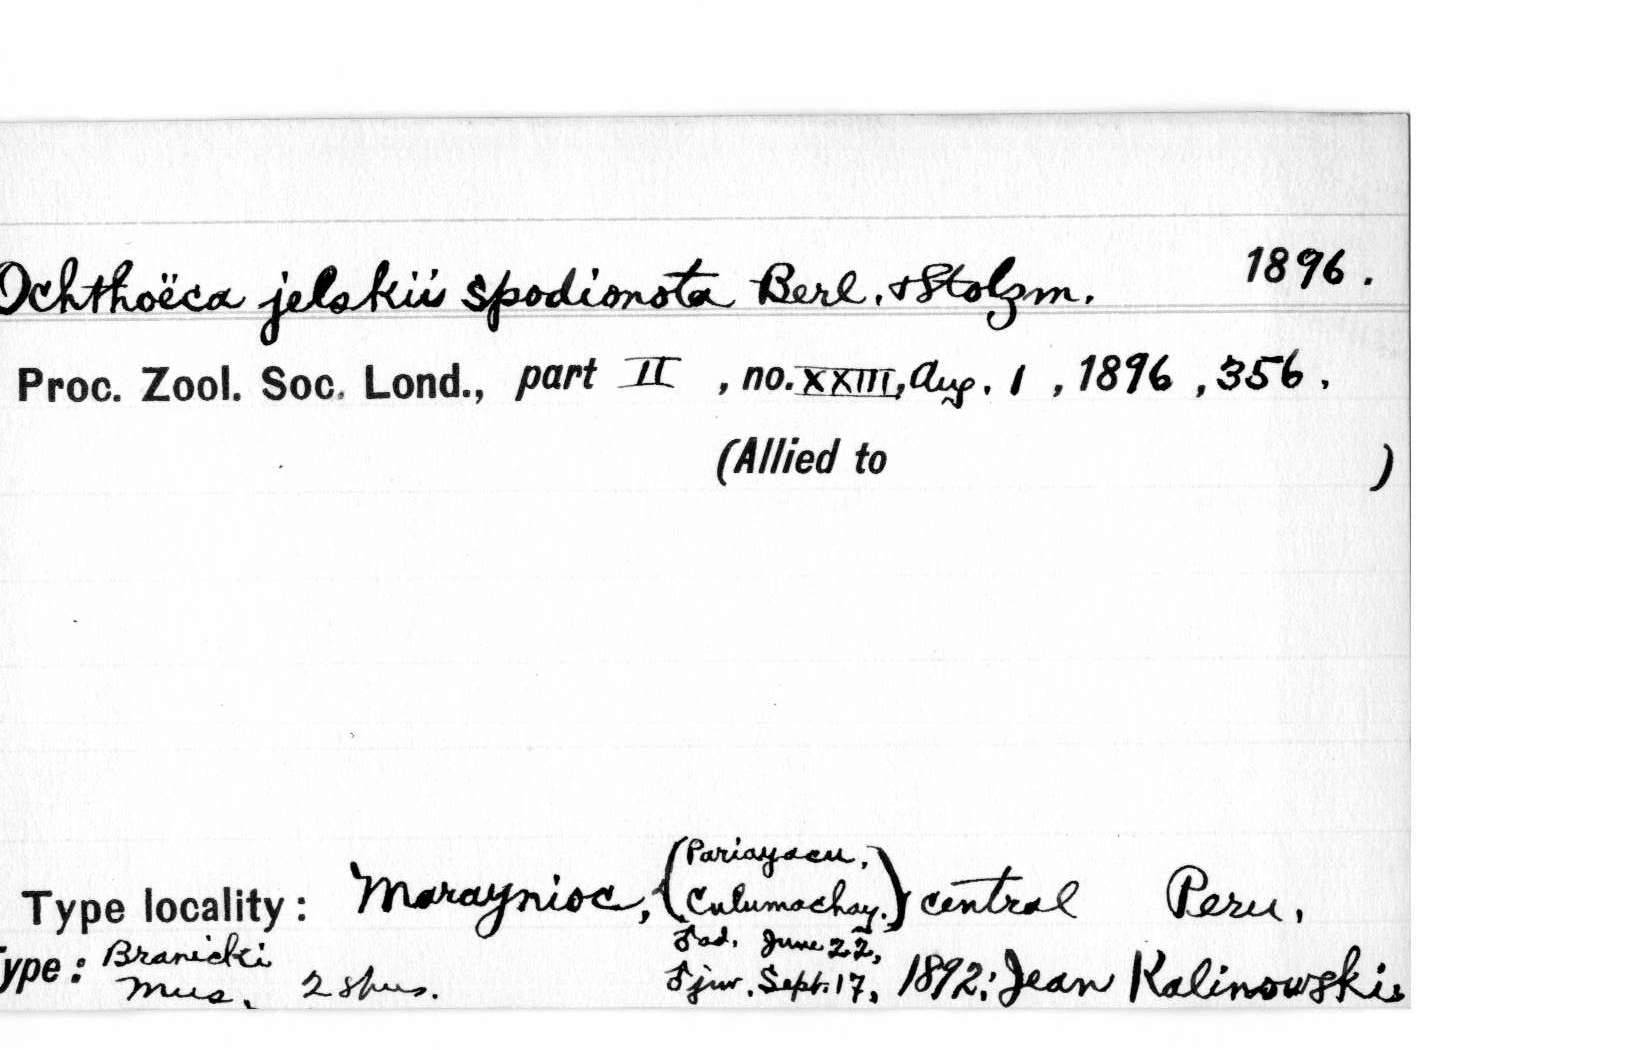 Ochthoëca jelskii spodionota Berl. & Stolzm. 1896.
Proc. Zool. Soc. Lond., part II, no. XXIII, Aug. 1, 1896, 356.
(Allied to )
Type locality: Maraynioc, (Pariayacu, Culumachay.) central Peru.
ype: Branicki Mus. 2 spms. ♂ ad. June 22, ♂ juv. Sept. 17, 1892; Jean Kalinowski.